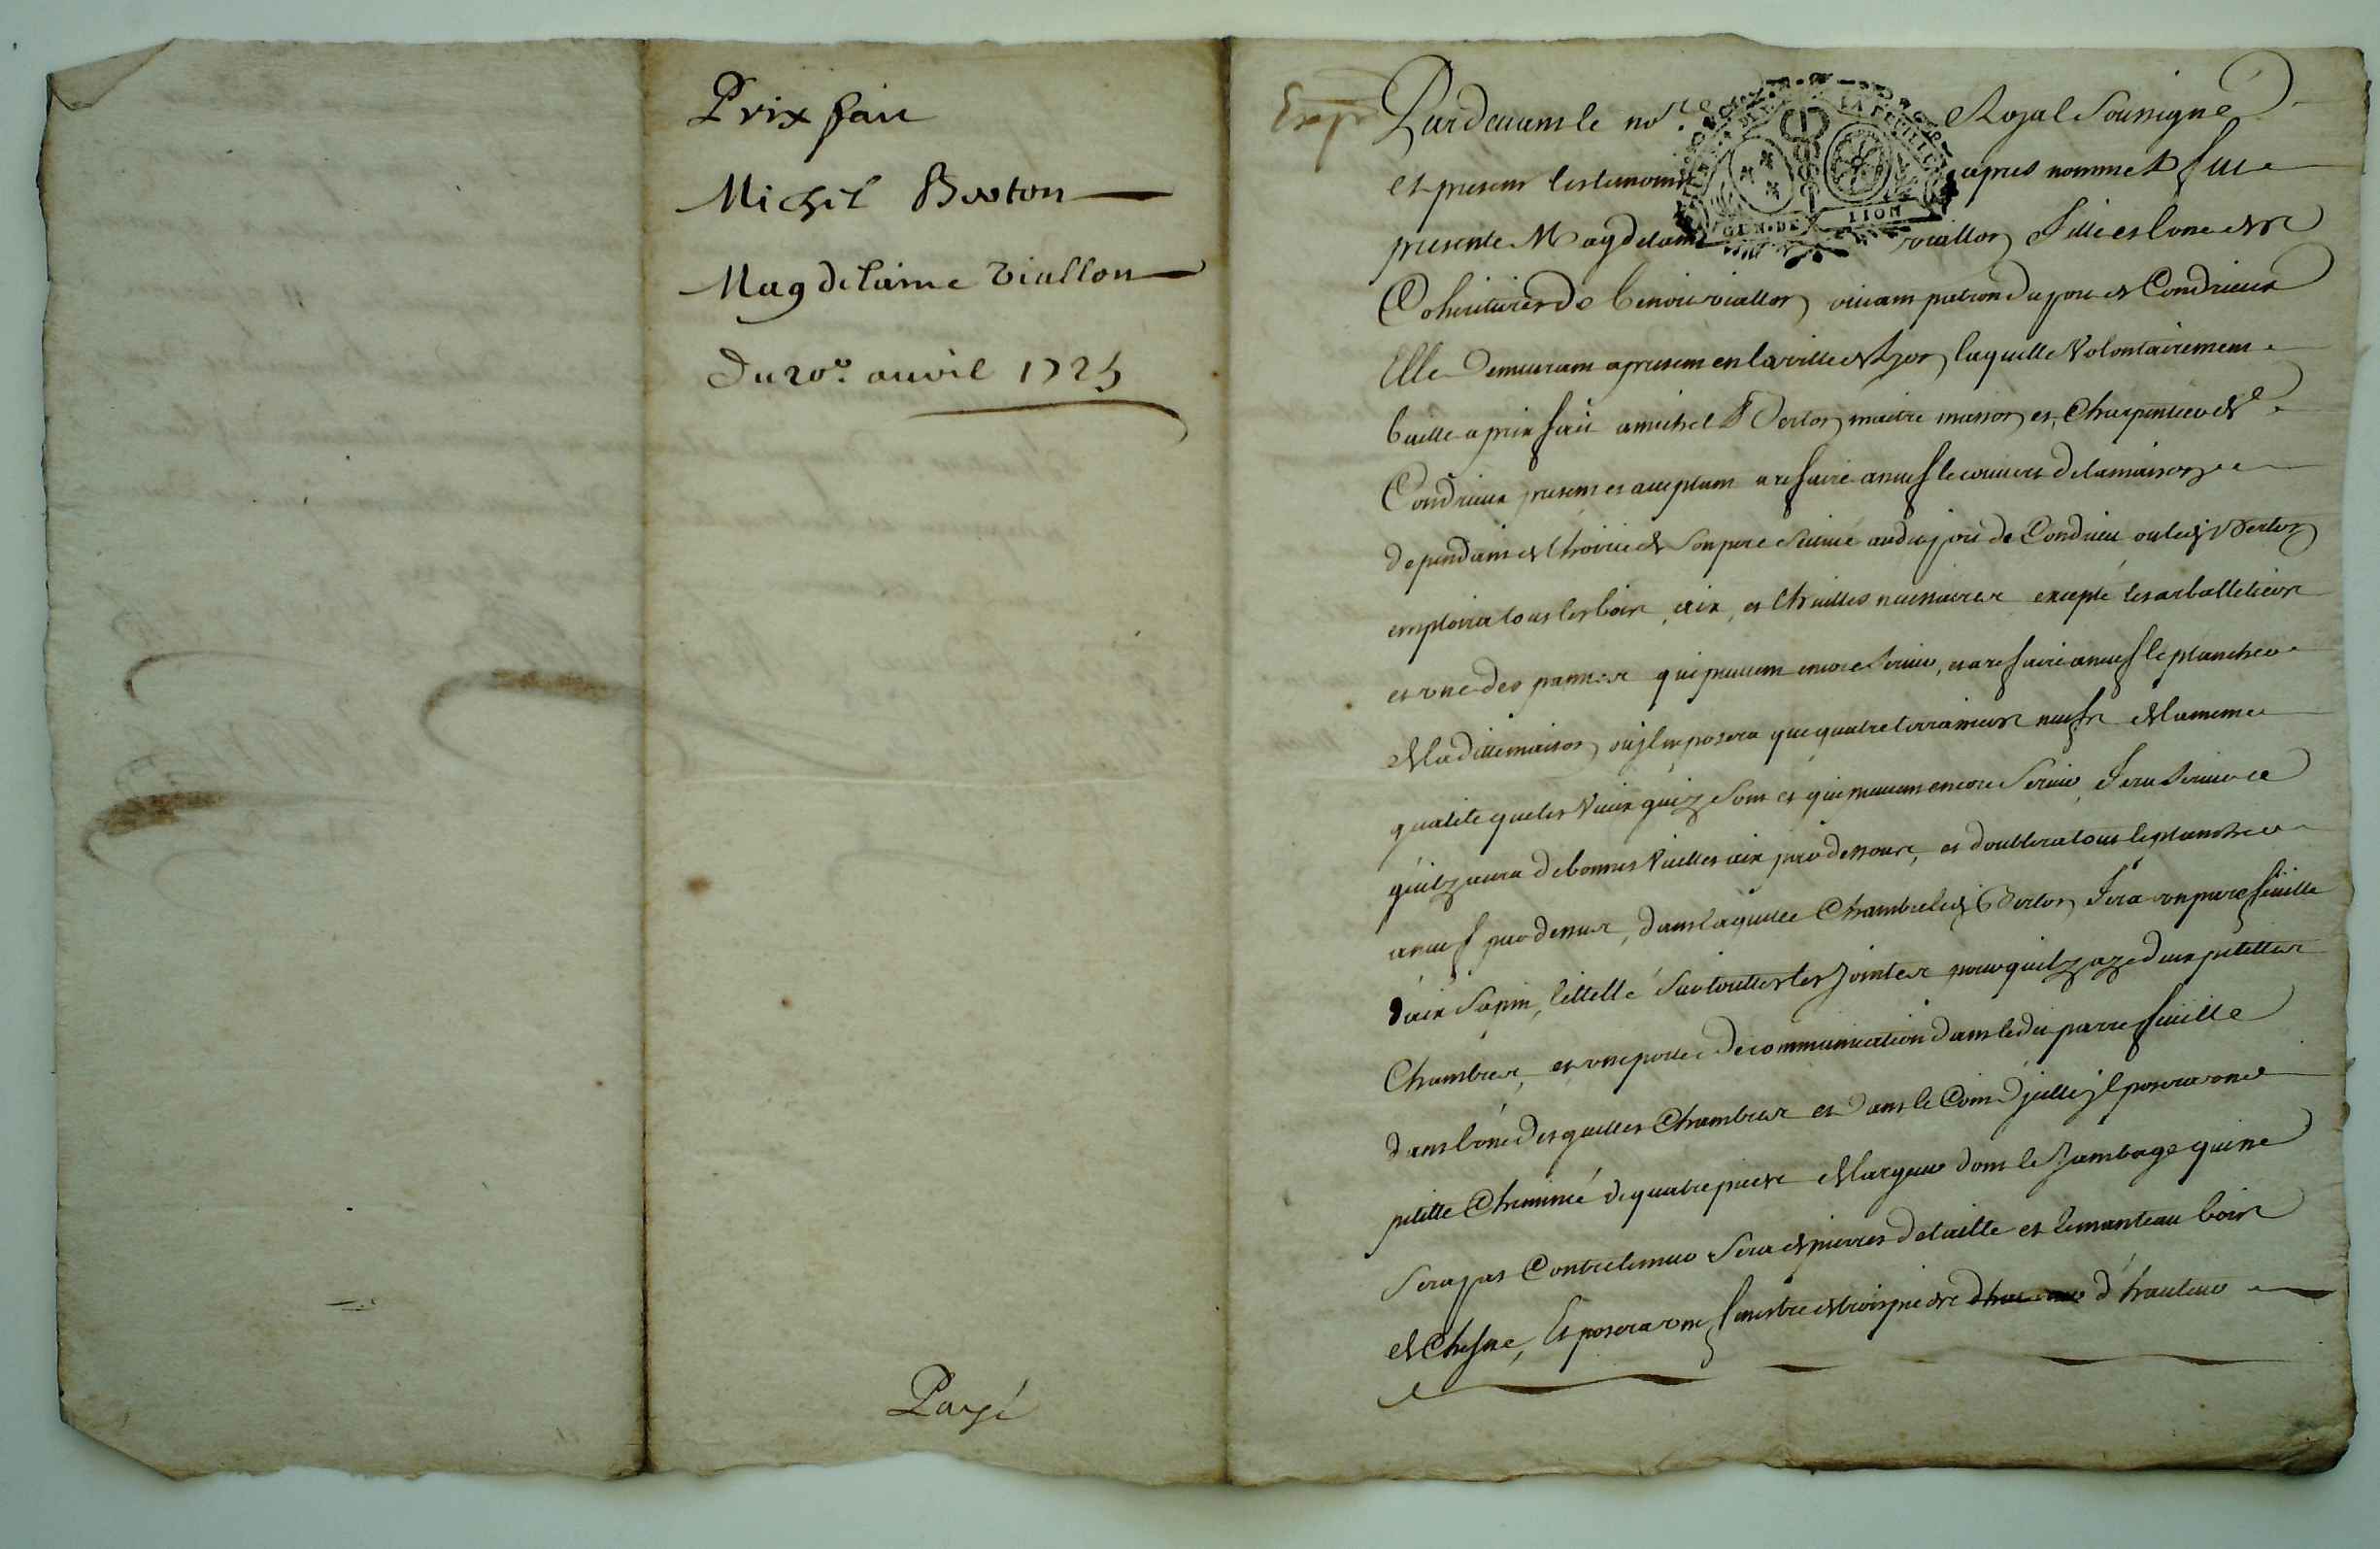 Prix fait
Michel Berton
Magdelaine Viallon
Du 20e. avril 1725
Payé
Exp
Pardevant le nore. Royal soussigné
et presens les temoins apres nommes fut
presente Magdelaine viallon fille et l'une des
Coheritieres de benoit viallon vivant patron du port de Condrieux
Elle demeurant a present en la ville de Lyon laquelle volontairement
baille a prix fait a michel Berton maitre masson et Charpentier de
Condrieux present et aceptant a refaire a neuf le couvert de la maison
dependant de l'hoirie de son pere scituée audit port de Condrieu ou ledit Berton
emploira tous les bois, aix, et thuilles necessaires excepté les arballetiers
et une des pannes qui peuvent encore servir, et a refaire a neuf le plancher
de ladite maison ou jl ne posera que quatre travaisons neufs de la meme
qualité que les vieux qui y sont et qui peuvent encore servir, fera servir ce
qu'il y aura de bonnes vieilles aix par dessous, et doublera tout le plancher
a neuf par dessus, dans laquelle Chambre ledit Berton fera un parefeüille
d'aix sapin, littellé sur touttes les jointes pour qu'il y aye deux petittes
Chambres, et une porte de communication dans ledit parrefeuille
dans l'une desquelles Chambres et dans le Coin d'jcelle jl posera une
petitte Cheminée de quatre pieds de largeur dont le jambage qui ne
sera pas Contre le mur sera de pierres de taille et le manteau bois
de Chesne, Et posera une fenestre de trois pieds d'hauteur